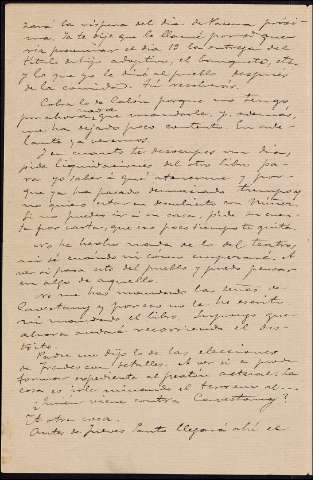 será la víspera del día de Pascua próxi-
ma. Ya te dije que lo llamé porque que-
ría presenciar el día 19 la entrega del
título de hijo adoptivo, el banquete, etc.
y lo que yo le diré al pueblo después
de la comida. Tú resolverás.
Cobra lo de Colón porque no tengo,
por ahora, nada que mandarle y, además,
me ha dejado poco contento. En ade-
lante ya veremos.
Y en cuanto te desocupes un día,
pide liquidaciones del otro libro pa-
ra yo saber a qué atenerme y por-
que ya ha pasado demasiado tiempo y
no quiero estar en descubierto con
Si no puedes ir a su casa, pide su cuen-
ta por carta, que eso poco tiempo te quita.
No he hecho nada de lo del teatro,
ni sé cuándo ni cómo empezaré. A
ver si pasa esto del pueblo y puedo pensar
en algo de aquello.
No me has mandado las señas de
Cavestany y por eso no le he escrito
ni mandado el libro. Supongo que
ahora andará recorriendo el dis-
trito.
Padre me dijo lo de las elecciones
de con detalles. A ver si se puede
formar expediente al la
cosa es ir minando el terreno al...
¿Quién viene contra Cavestany?
Y a otra cosa.
Antes de Jueves Santo llegará ahí el